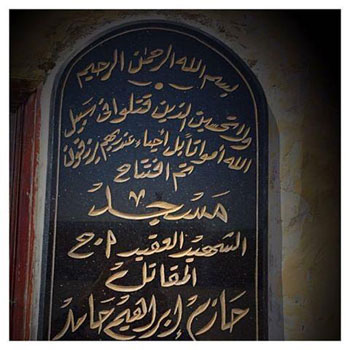 بسم الله الرحمن الرحيم
ولا تحسبن الذين قتلوا في سبيل
الله أمواتا بل أحياء عند ربهم يرزقون
تم افتتاح
مسجد
الشهيد العقيد أ.ح
المقاتل
حازم إبراهيم حامد